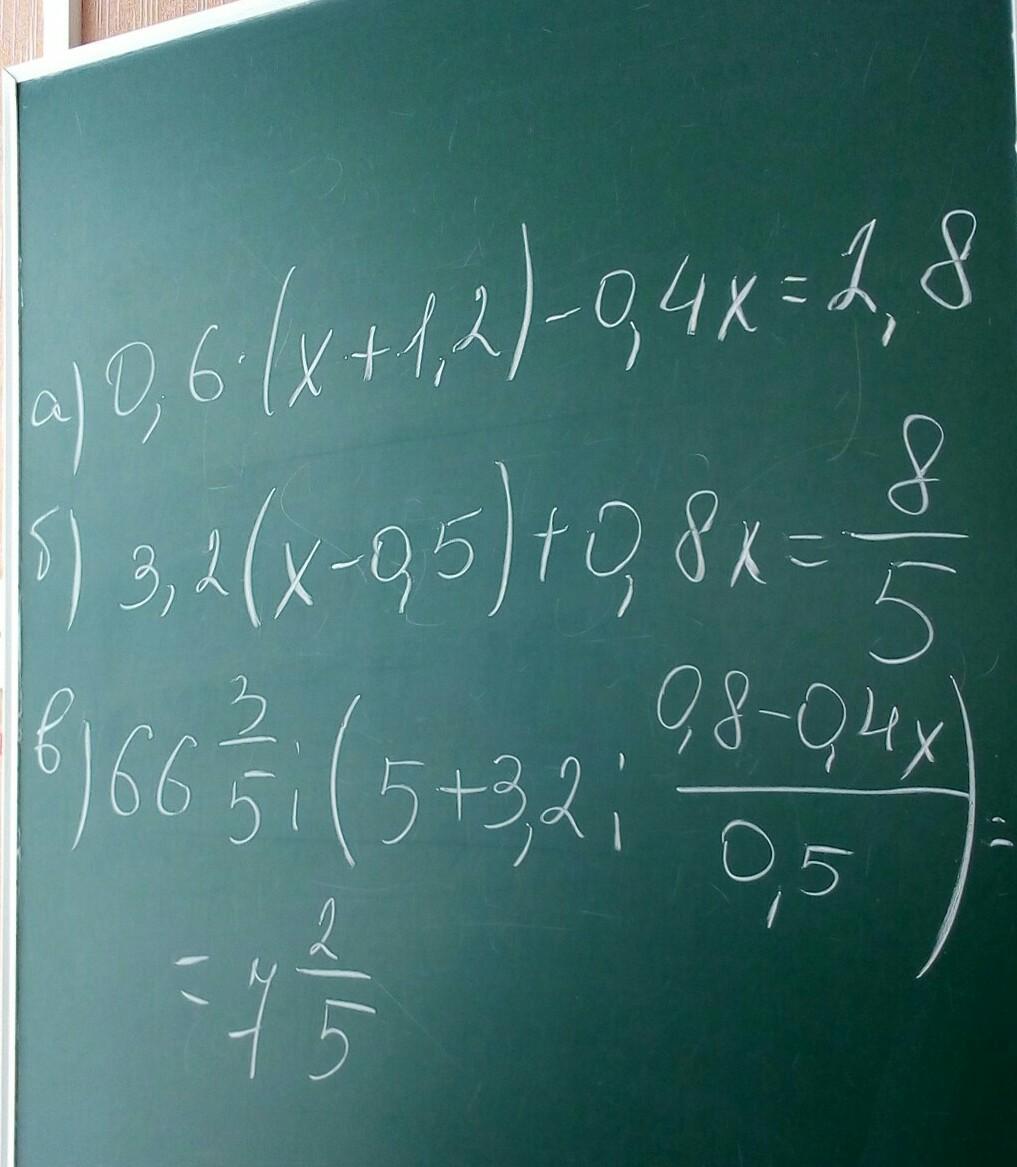 а) 0,6·(x+1,2)-0,4x=2,8
б) 3,2(x-0,5)+0,8x=8/5
в) 66 3/5 : (5+3,2 : (0,8-0,4x)/0,5) =
= 7 2/5